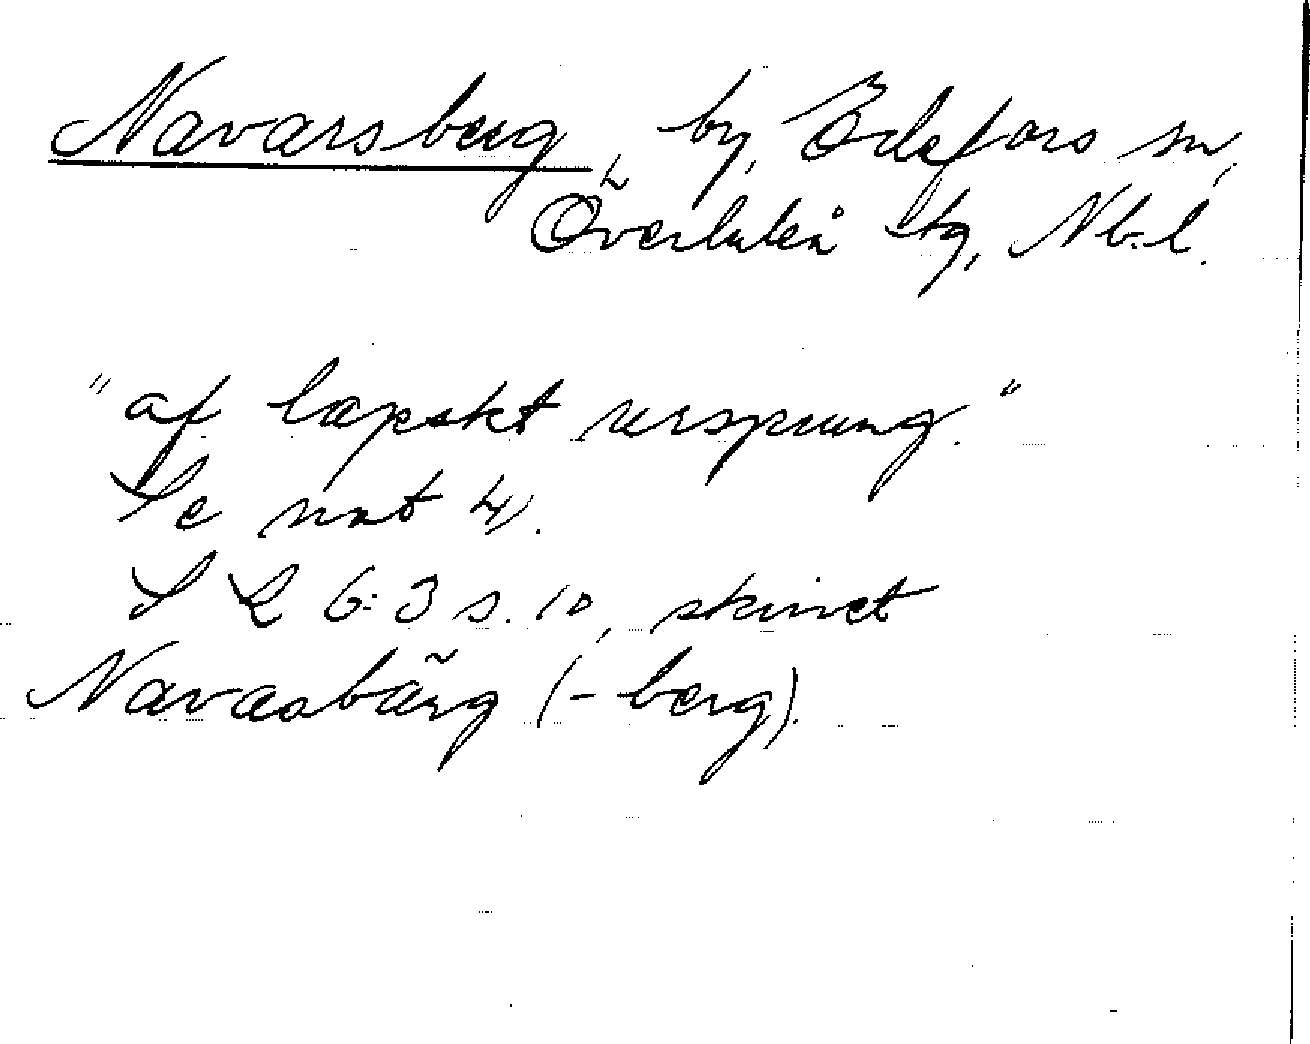 Navarsberg, by, Edefors sn,
Överluleå tg, Nb.l.
"af lapskt ursprung."
Se not 4).
S L 6:3 s. 10, skrivet
Navasbärg (-berg).